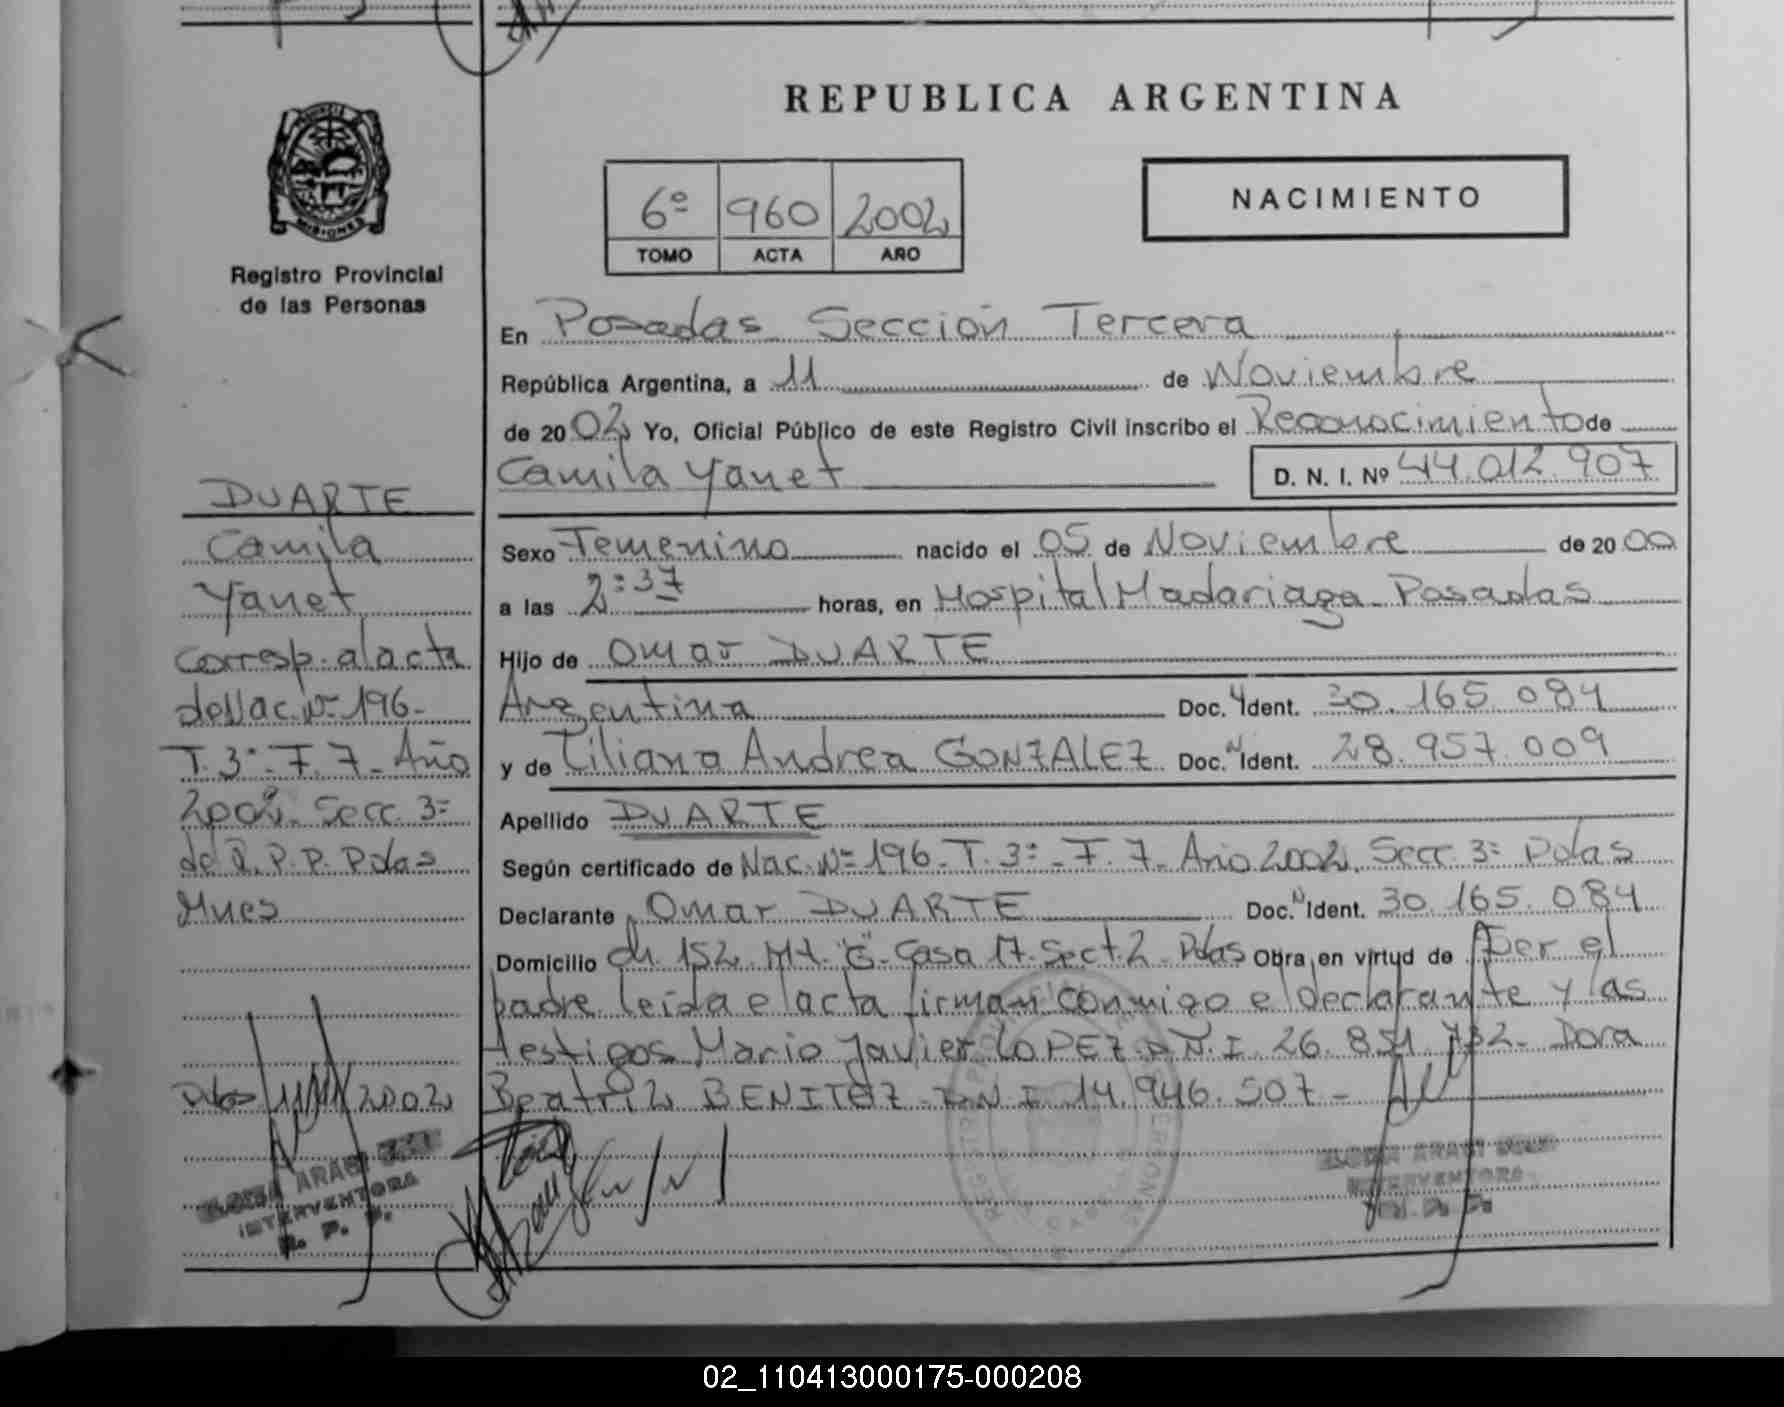 REPUBLICA ARGENTINA
NACIMIENTO
6º 960 2002
TOMO ACTA AÑO
PROVINCIA DE MISIONES
Registro Provincial
de las Personas
En Posadas Sección Tercera
República Argentina, a 11 de Noviembre
de 2002 Yo, Oficial Público de este Registro Civil inscribo el Reconocimiento de
Camila Yanet D. N. I. Nº 44.012.907
Sexo Femenino nacido el 05 de Noviembre de 2000
a las 2:37 horas, en Hospital Madariaga Posadas
Hijo de Omar DUARTE
Argentina Doc. Ident. 30.165.084
y de Liliana Andrea GONZALEZ Doc. Ident. 28.957.009
Apellido DUARTE
Según certificado de Nac. Nº 196-T.3º-F.7-Año 2002. Secc. 3º Pdas
Declarante Omar DUARTE Doc. Ident. 30.165.084
Domicilio Ch. 152 Mz. "G"-Casa 17. Sect. 2 - Pdas Obra en virtud de Ser el
padre leída el acta firman conmigo el declarante y las
testigos Mario Javier LOPEZ D.N.I. 26.851.732- Dora
Beatriz BENITEZ D.N.I 14.946.507-
DUARTE
Camila
Yanet
Corresp. al acta
de Nac. Nº 196-
T.3º-F.7-Año
2002. Secc. 3º
de R.P.P. Pdas
Mnes
Pdas 11/11/2002
INTERVENTORA
R. P. P.
INTERVENTORA
R. P. P.
02_110413000175-000208